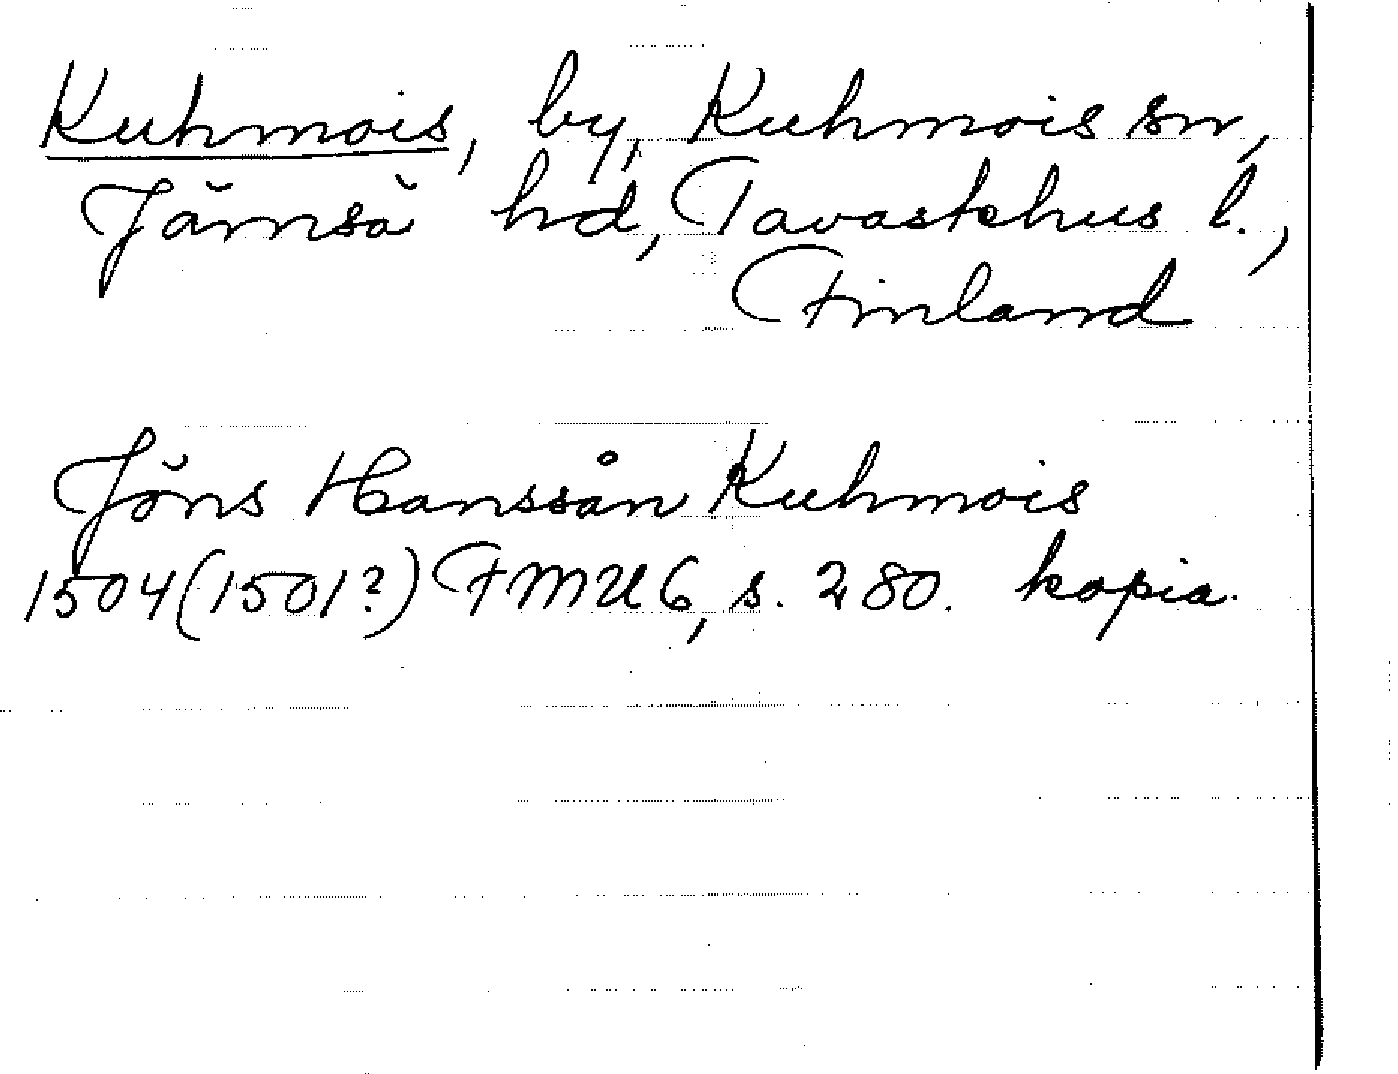 Kuhmois, by, Kuhmois sn,
Jämsä hd, Tavastehus l.,
Finland
Jöns Hanssån Kuhmois
1504 (1501?) FMU 6, s. 280. kopia.